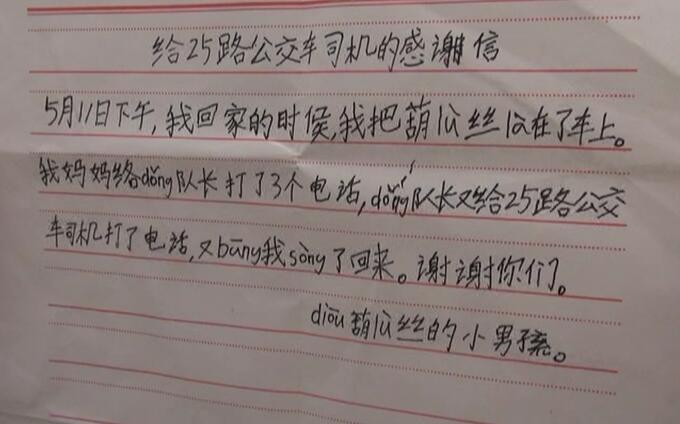 给25路公交车司机的感谢信
5月11日下午,我回家的时候,我把葫瓜丝diu在了车上。
我妈妈给dǒng队长打了3个电话,dǒng队长又给25路公交
车司机打了电话,又bāng我sòng了回来。谢谢你们。
diōu葫瓜丝的小男孩。